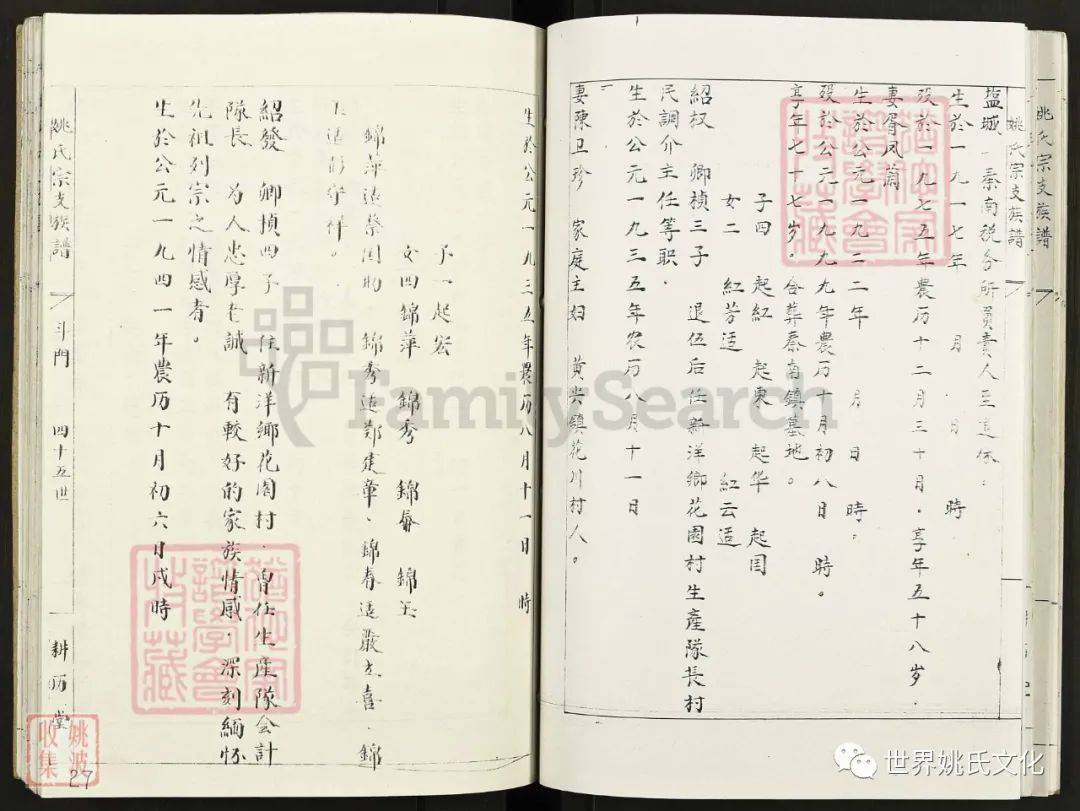 姚氏宗支族譜
姚氏宗支族譜
塩城-秦南税务所負責人至退休.
生於一九一七年 月 日 時
殁於一九七五年農历十二月三十日.享年五十八岁.
妻胥凤蘭
生於公元一九二二年 月 日 時.
殁於公元一九九九年農历十月初八日 時。
享年七十七岁。合葬秦南鎮墓地。
子四 起紅 起東 起华 起国
女二 紅芳适 紅云适
紹权 卿楨三子 退伍后任新洋鄉花園村生產隊長村
民調介主任等职.
生於公元一九三五年农历八月十一日
妻陳卫珍 家庭主妇 黄尖鎮花川村人。
生於公元一九三五年農历八月十一日 時
子一起宏
女四錦萍 錦秀 錦春 錦玉
錦萍适蔡国助 錦秀适鄭建章.錦春适嚴志喜.錦
玉适彭守祥。
紹發 卿楨四子 住新洋鄉花園村.曾任生產隊会計
隊長 为人忠厚老誠 有較好的家族情感.深刻緬怀
先祖列宗之情感者。
生於公元一九四一年農历十月初六日戌時
姚氏宗支族譜 斗門 四十五世 耕历堂
姚波收集
27
FamilySearch
世界姚氏文化